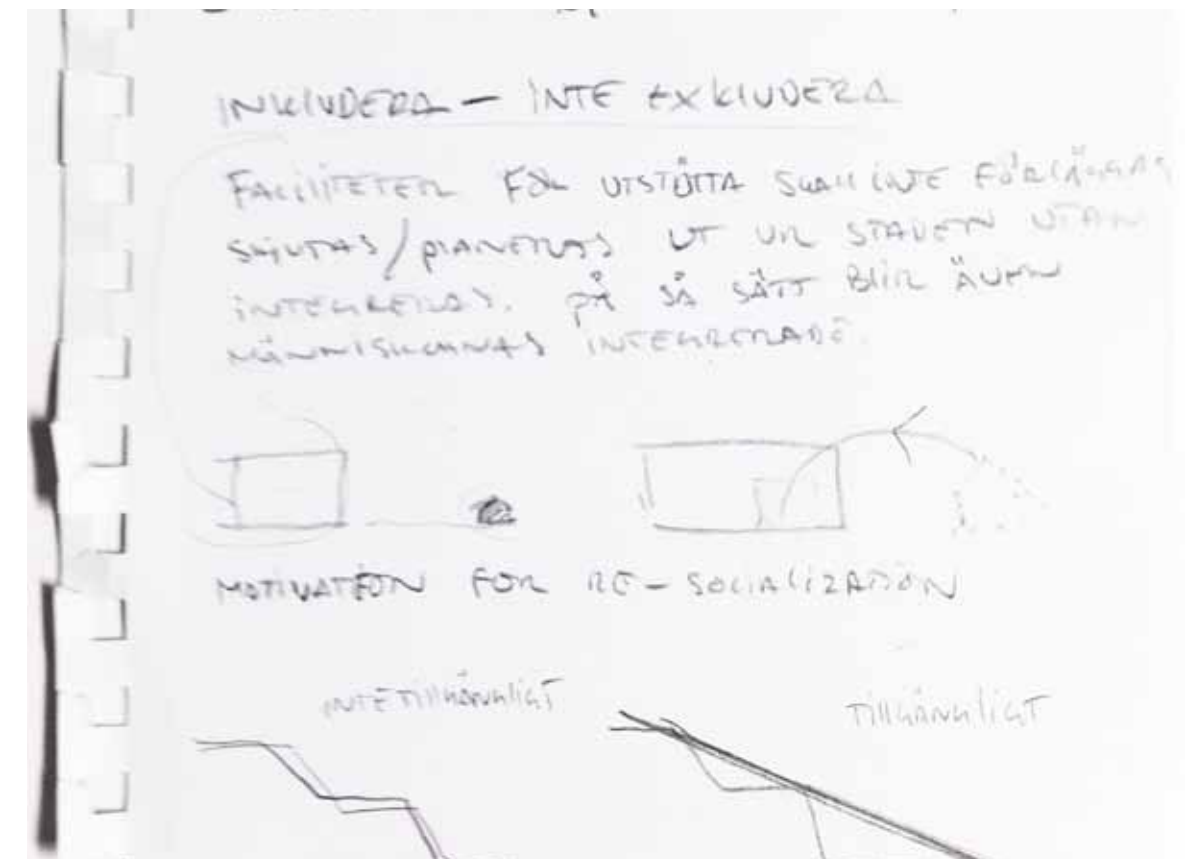 INKLUDERA – INTE EXKLUDERA
FACILITETER FÖR UTSTÖTTA SKALL INTE FÖRLÄGGAS
SKJUTAS/PLANERAS UT UR STADEN UTAN
INTEGRERAS. PÅ SÅ SÄTT BLIR ÄVEN
MÄNNISKORNAS INTEGRERADE.
MOTIVATION FOR RE-SOCIALIZATION
INTE TILLGÄNGLIGT
TILLGÄNGLIGT